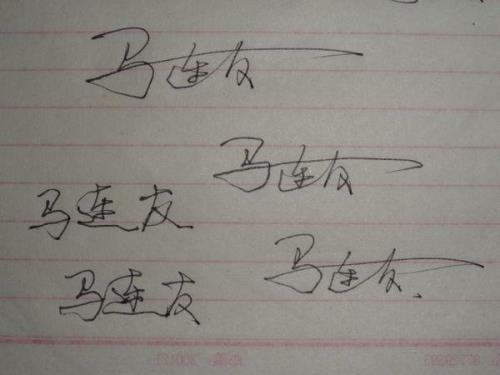 马连友
马连友
马连友
马连友
马连友